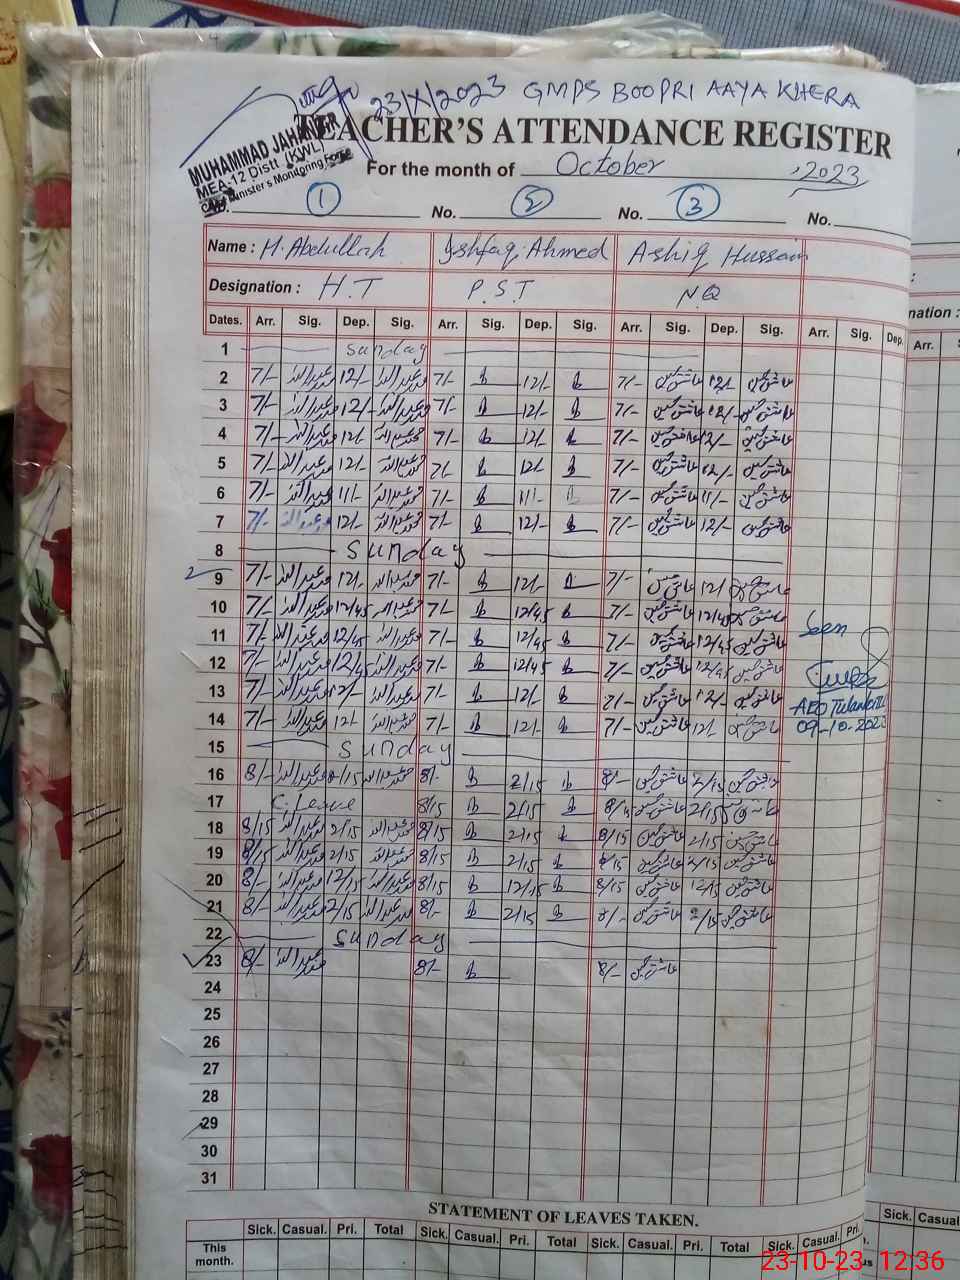 23/X/2023 GMPS BOOPRI AAYA KHERA
TEACHER'S ATTENDANCE REGISTER
MUHAMMAD JAHANGIR
MEA-12 Distt (KWL)
Chief Minister's Monitoring Force
For the month of October, 2023
No. 1 No. 2 No. 3 No.
Name : M. Abdullah Ishfaq Ahmed Ashiq Hussain
Designation : H.T P.S.T N.Q
Dates. Arr. Sig. Dep. Sig. Arr. Sig. Dep. Sig. Arr. Sig. Dep. Sig. Arr. Sig. Dep.
1 Sunday
2 7/- محمد عبداللہ 12/- محمد عبداللہ 7/- 12/- 7/- عاشق حسین 12/- عاشق حسین
3 7/- محمد عبداللہ 12/- محمد عبداللہ 7/- 12/- 7/- عاشق حسین 12/- عاشق حسین
4 7/- محمد عبداللہ 12/- محمد عبداللہ 7/- 12/- 7/- عاشق حسین 12/- عاشق حسین
5 7/- محمد عبداللہ 12/- محمد عبداللہ 7/- 12/- 7/- عاشق حسین 12/- عاشق حسین
6 7/- محمد عبداللہ 11/- محمد عبداللہ 7/- 11/- 7/- عاشق حسین 11/- عاشق حسین
7 7/- محمد عبداللہ 12/- محمد عبداللہ 7/- 12/- 7/- عاشق حسین 12/- عاشق حسین
8 Sunday
9 7/- محمد عبداللہ 12/- محمد عبداللہ 7/- 12/- 7/- عاشق حسین 12/ عاشق حسین
10 7/- محمد عبداللہ 12/45 محمد عبداللہ 7/- 12/45 7/- عاشق حسین 12/45 عاشق حسین
Seen
11 7/- محمد عبداللہ 12/45 محمد عبداللہ 7/- 12/45 7/- عاشق حسین 12/45 عاشق حسین
12 7/- محمد عبداللہ 12/45 محمد عبداللہ 7/- 12/45 7/- عاشق حسین 12/45 عاشق حسین
13 7/- محمد عبداللہ 12/- محمد عبداللہ 7/- 12/- 7/- عاشق حسین 12/- عاشق حسین
AEO
14 7/- محمد عبداللہ 12/- محمد عبداللہ 7/- 12/- 7/- عاشق حسین 12/- عاشق حسین
09-10-2023
15 Sunday
16 8/- محمد عبداللہ 2/15 محمد عبداللہ 8/- 2/15 8/- عاشق حسین 2/15 عاشق حسین
17 C. Leave 8/15 2/15 8/15 عاشق حسین 2/15 عاشق حسین
18 8/15 محمد عبداللہ 2/15 محمد عبداللہ 8/15 2/15 8/15 عاشق حسین 2/15 عاشق حسین
19 8/15 محمد عبداللہ 2/15 محمد عبداللہ 8/15 2/15 8/15 عاشق حسین 2/15 عاشق حسین
20 8/- محمد عبداللہ 12/15 محمد عبداللہ 8/15 12/15 8/15 عاشق حسین 12/15 عاشق حسین
21 8/- محمد عبداللہ 2/15 محمد عبداللہ 8/- 2/15 8/- عاشق حسین 2/15 عاشق حسین
22 Sunday
23 8/- محمد عبداللہ 8/- 8/- عاشق حسین
24
25
26
27
28
29
30
31
STATEMENT OF LEAVES TAKEN.
Sick. Casual. Pri. Total Sick. Casual. Pri. Total Sick. Casual. Pri. Total Sick. Casual. Pri.
This month.
nation :
Arr.
Sick. Casual
23-10-23 12:36